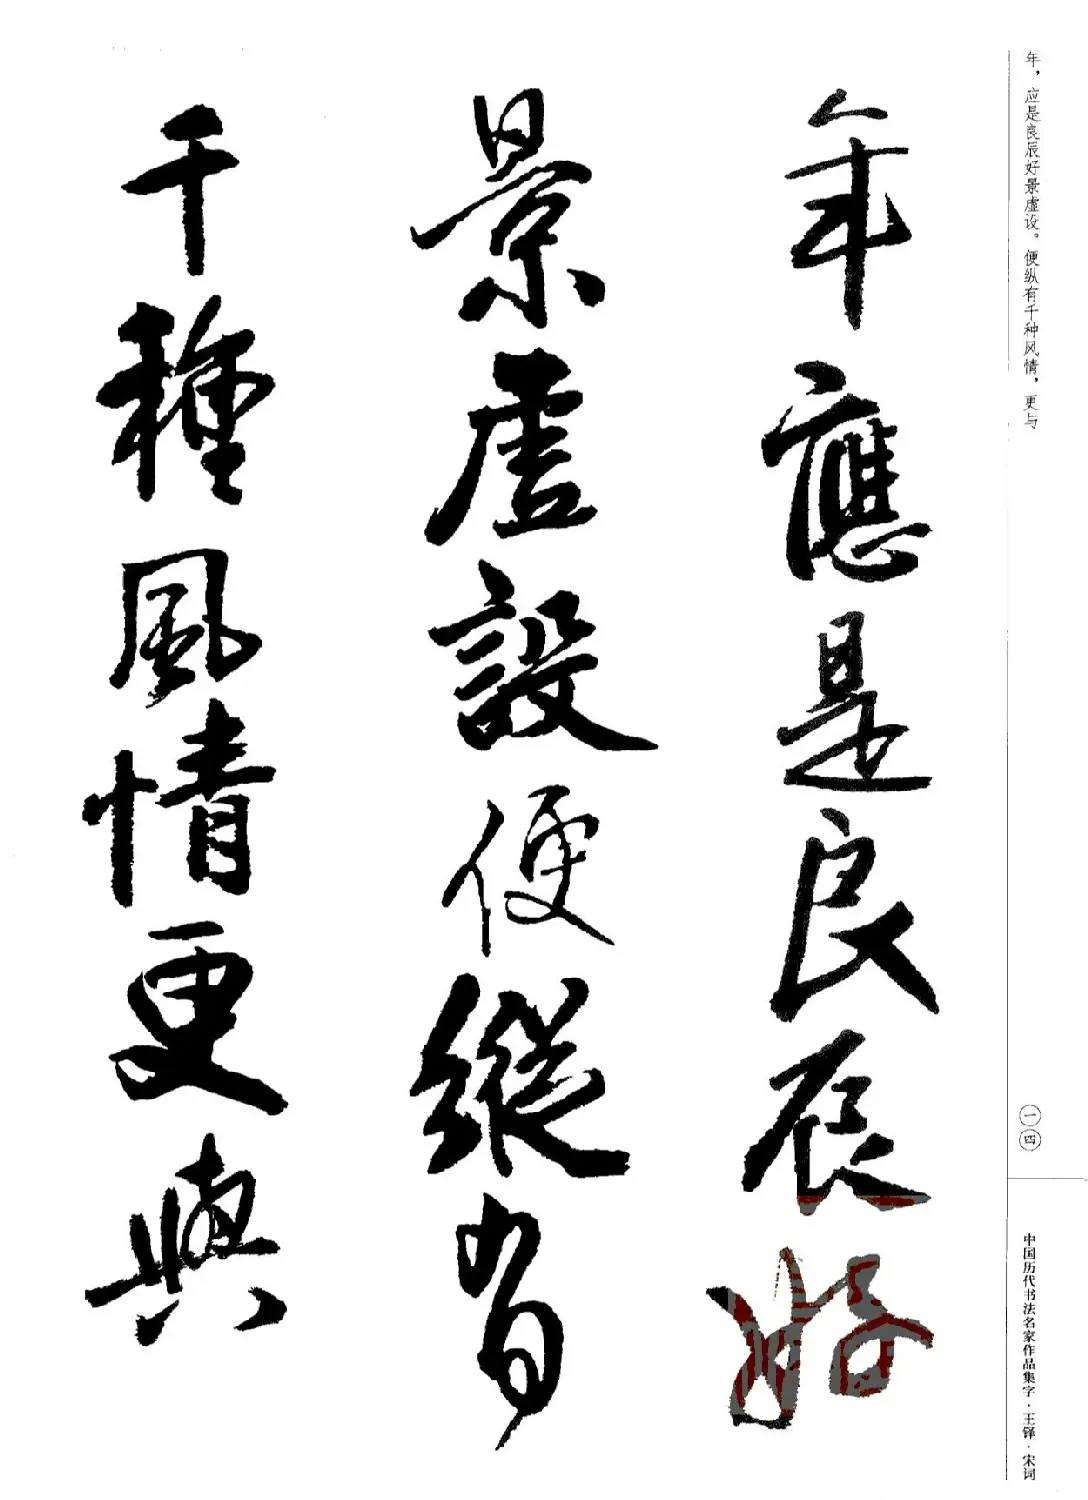 年，应是良辰好景虚设。便纵有千种风情，更与
年應是良辰好
景虛設便縱有
千種風情更與
一四
中国历代书法名家作品集字·王铎·宋词